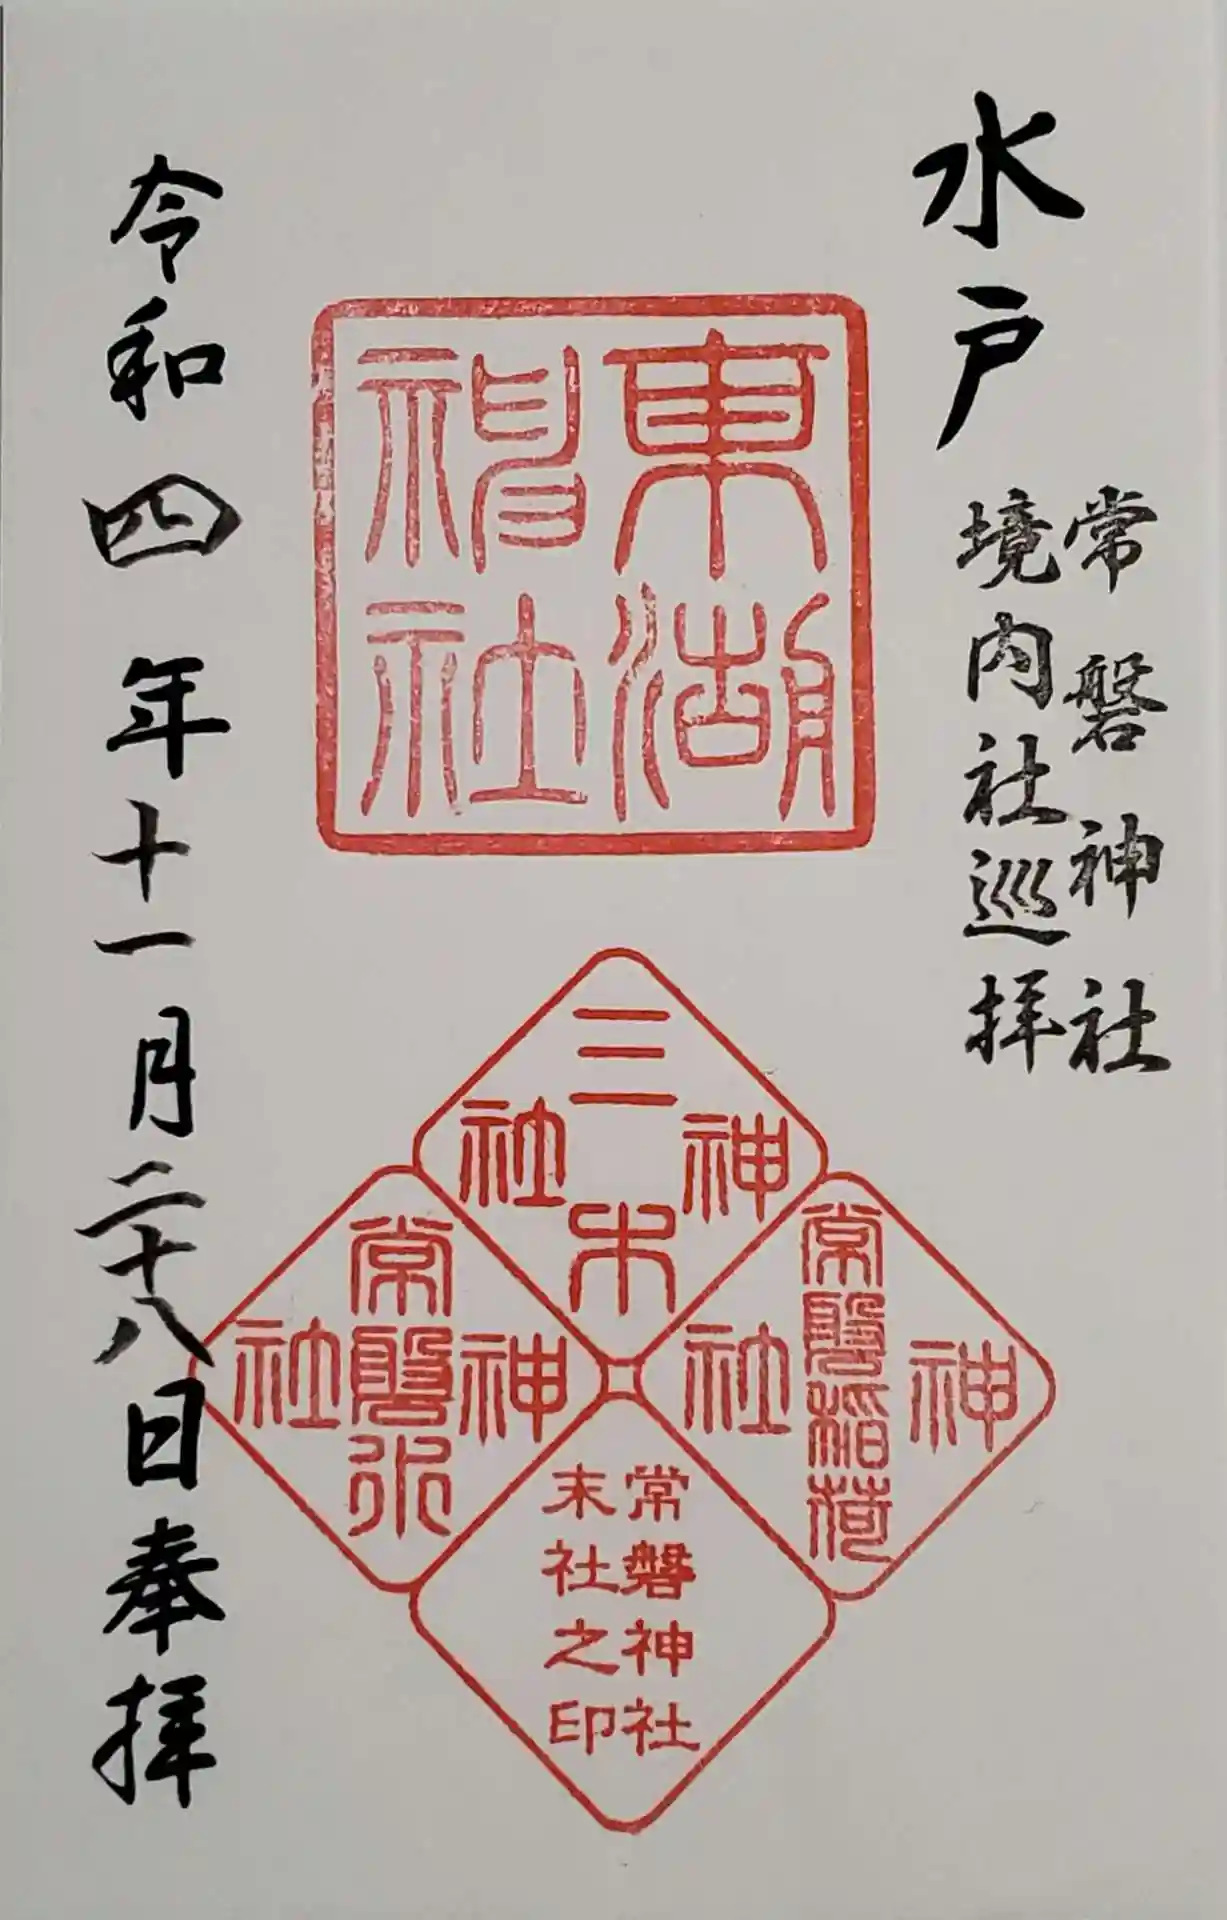 水戸
常磐神社
境内社巡拝
東湖
神社
三木
神社
常磐稲荷
神社
常磐水
神社
常磐神社
末社之印
令和四年十一月二十八日奉拝